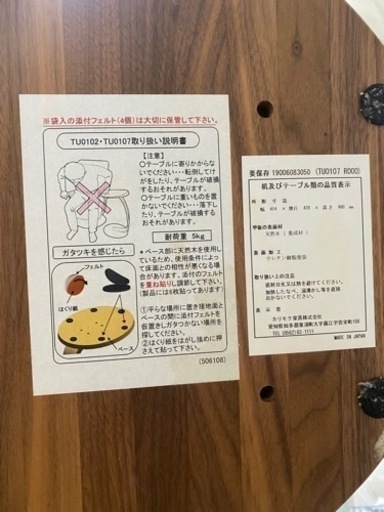 ※袋入の添付フェルト(4個)は大切に保管して下さい。
TU0102・TU0107取り扱い説明書
【注意】
○テーブルに寄りかからな
いでください・・・転倒してけ
がをしたり、テーブルが破
損するおそれがあります。
○テーブルに重いものを置
かないでください・・・落下し
たり、テーブルが破損する
おそれがあります。
耐荷重 5kg
ガタツキを感じたら
フェルト
はくり紙
ベース
●ベース部に天然木を使用し
ているため、使用条件によっ
て床面との相性が悪くなる場
合があります。添付フェルト
を重ね貼りし調節して下さい。
(製品には6枚貼ってあります)
①平らな場所に置き接地面と
ベースの間に添付フェルトを
仮置きしガタつかない場所を
探して下さい。
②はくり紙をはがし強めに押
さえて貼って下さい。
(506108)
要保存 19006083050 (TU0107 R000)
机及びテーブル類の品質表示
外形寸法
甲板の表面材
天然木(集成材)
表面加工
ウレタン樹脂塗装
取扱い上の注意
直射日光又は熱を避けてください。
表示者
カリモク家具株式会社
愛知県知多郡東浦町大字藤江字皆栄町108
TEL (0562) 83-1111
MADE IN JAPAN